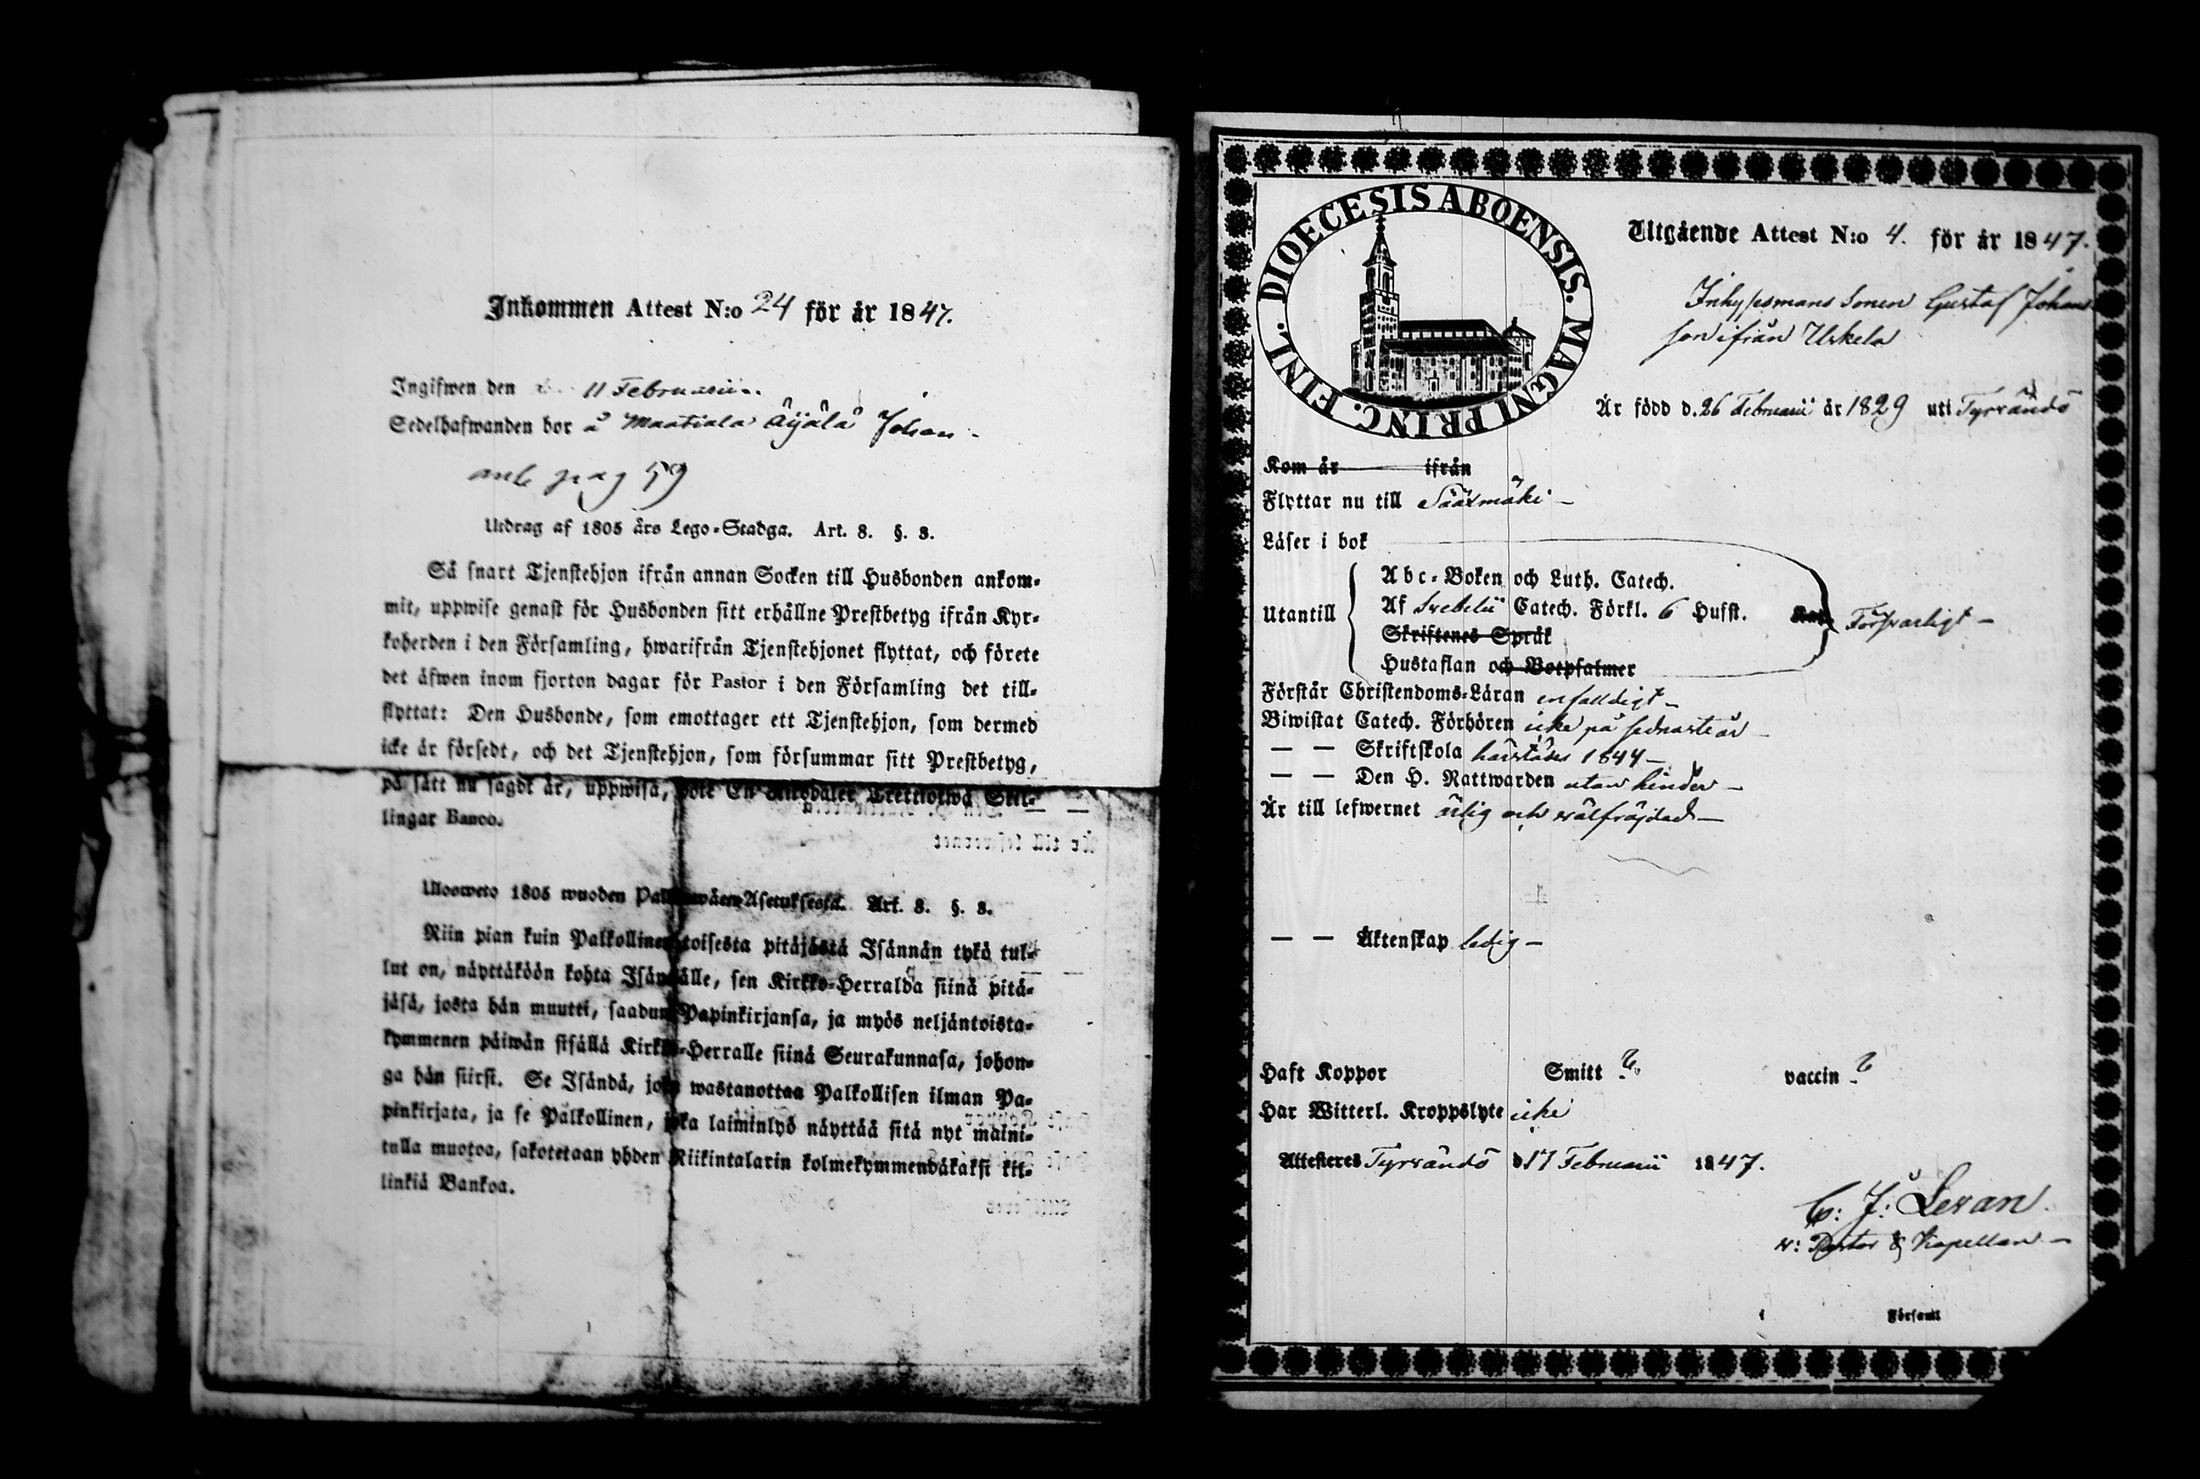 Inkommen Attest N:o 24 för år 1847.
Ingifwen den 11 Februarii
Sedelhafwanden bor å Maatiala Äijälä Johan
anb pag 59
Utdrag af 1805 års Lego-Stadga. Art. 8. §. 3.
Så snart Tjenstehjon ifrån annan Socken till Husbonden ankom-
mit, uppwise genast för Husbonden sitt erhållne Prestbetyg ifrån Kyr-
koherden i den Församling, hwarifrån Tjenstehjonet flyttat, och förete
det äfwen inom fjorton dagar för Pastor i den Församling det till-
flyttat: Den Husbonde, som emottager ett Tjenstehjon, som dermed
icke är försedt, och det Tjenstehjon, som försummar sitt Prestbetyg,
på sätt nu sagdt är, uppwisa, böte En Riksdaler Trettiotwå Skil-
lingar Banco.
Ulosweto 1805 wuoden Palkkawäen-Asetuksesta. Art. 8. §. 3.
Niin pian kuin Palkollinen toisesta pitäjästä Isännän tykö tul-
lut on, näyttäköön kohta Isännälle, sen Kirkko-Herralda siinä pitä-
jäsä, josta hän muutti, saadun Papinkirjansa, ja myös neljäntoista-
kymmenen päiwän sisällä Kirkko-Herralle siinä Seurakunnasa, johon-
ga hän siirsi. Se Isändä, joka wastanottaa Palkollisen ilman Pa-
pinkirjata, ja se Palkollinen, joka laiminlyö näyttää sitä nyt maini-
tulla muotoa, sakotetaan yhden Riikintalarin kolmekymmendäkaksi kil-
linkiä Bankoa.
DIOECESIS ABOENSIS. MAGNI PRINC. FINL.
Utgående Attest N:o 4. för år 1847.
Inhysesmans Sonen Gustaf Johans
son ifrån Uskela
Är född d. 26 Februarii år 1829 uti Tyrvändö
Kom år ifrån
Flyttar nu till Sääxmäki
Läser i bok
Utantill
Abc-Boken och Luth. Catech.
Af Svebelii Catech. Förkl. 6 Hufst. Försvarligt
Skriftenes Språk
Hustaflan och Botpsalmer
Förstår Christendoms-Läran enfaldigt
Biwistat Catech. Förhören icke på sednaste år
— — Skriftskola härstädes 1844
— — Den H. Nattwarden utan hinder
Är till lefwernet ärlig och välfräjdad
— — Äktenskap ledig
Haft Koppor Smitt vaccin
Har Witterl. Kroppslyte icke
Attesteres Tyrvändö d 17 Februarii 1847.
C: J: Levan.
v: Pastor & Kapellan
i Församl